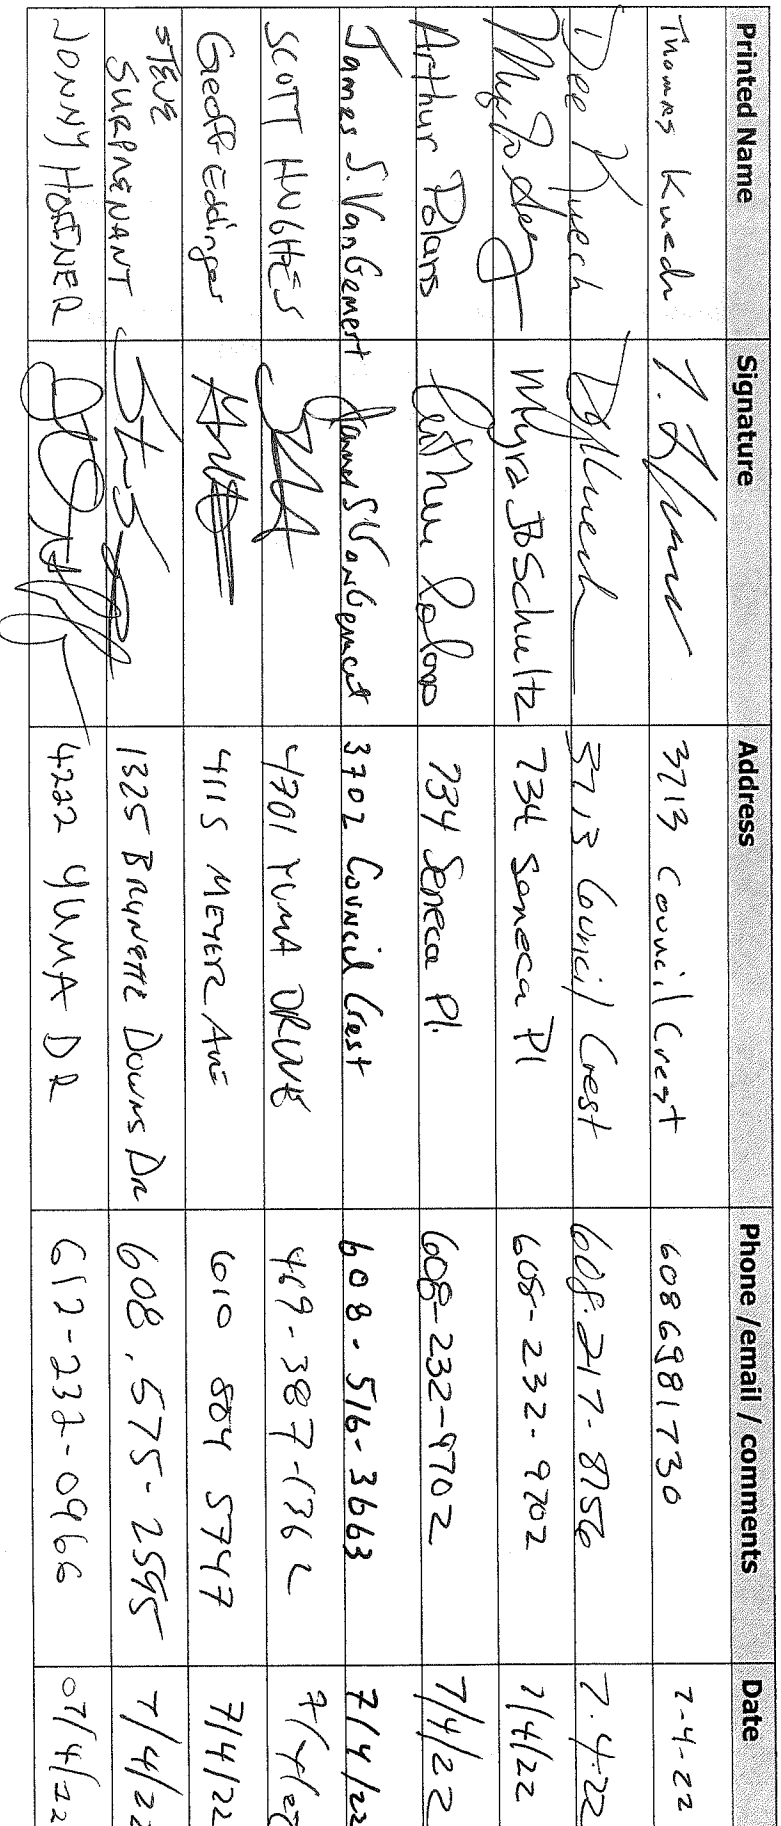 Printed Name Signature Address Phone /email / comments Date
Thomas Kuech 3713 Council Crest 6086981730 7-4-22
Dee Kuech 3713 Council Crest 608.217-8756 7.4.22
Myra Jo Schultz 734 Seneca Pl 608-232-9702 7/4/22
Arthur Polans 734 Seneca Pl. 608-232-9702 7/4/22
James S. VanGemert James S VanGemert 3702 Council Crest 608-516-3663 7/4/22
SCOTT HUGHES 4701 YUMA DRIVE 469-387-1362 7/4/22
Geoff Eddinger 4115 MEYER AVE 610 804 5747 7/4/22
STEVE
SURPRENANT 1325 BRUNETTE DOWNS DR 608.575-2595 7/4/22
JONNY HOFFNER 4222 YUMA DR 612-232-0966 07/4/22